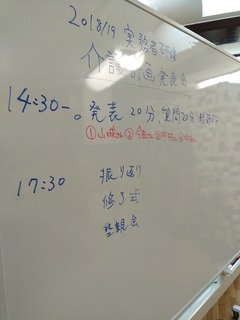 2018/19 実務者研修
介護計画発表会
14:30-。発表20分,質問20分
①山 さん②今 さん③中
17:30 振り返り
修了式
懇親会